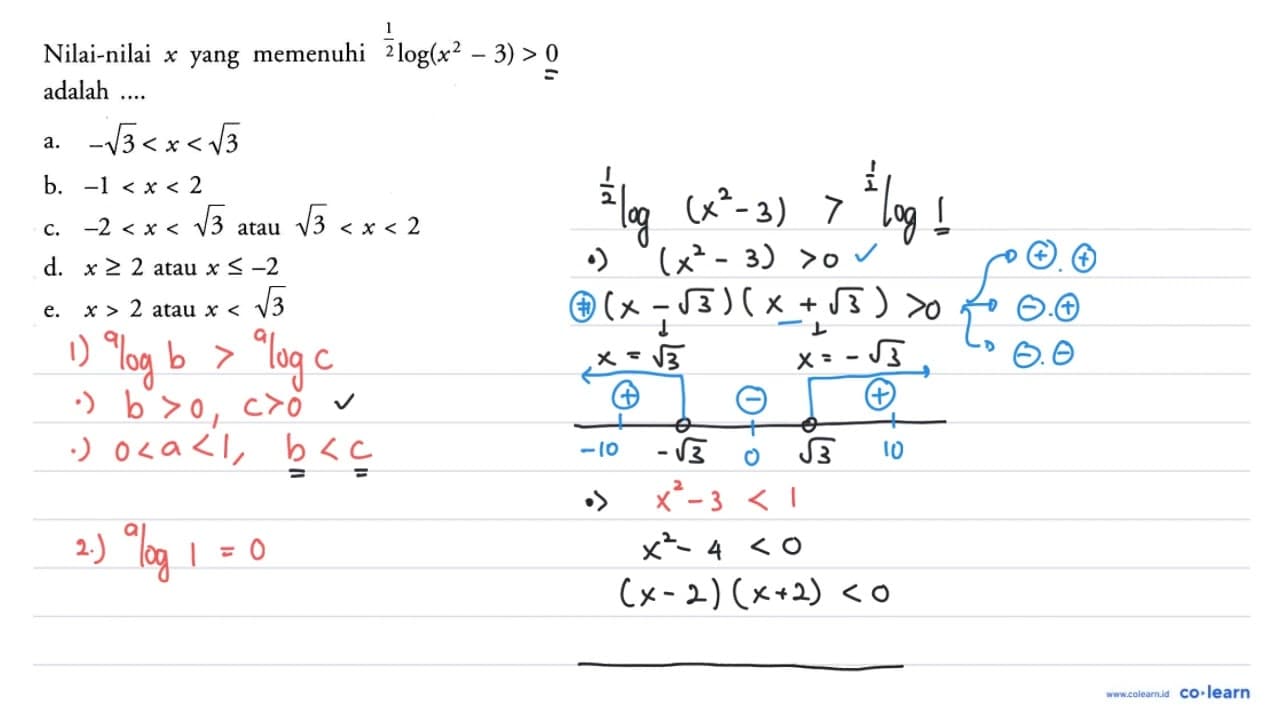 Nilai-nilai x yang memenuhi ^{1/2}log(x² – 3) > 0
adalah ....
a. –√3 < x < √3
b. –1 < x < 2
c. –2 < x < √3 atau √3 < x < 2
d. x ≥ 2 atau x ≤ –2
e. x > 2 atau x < √3
1) ᵃlog b > ᵃlog c
·) b > 0, c > 0 ✓
·) 0 < a < 1, b < c
2.) ᵃlog 1 = 0
^{1/2}log (x² - 3) > ^{1/2}log 1
•) (x² - 3) > 0 ✓
(x - √3)(x + √3) > 0
⊕.⊕
⊖.⊕
⊖.⊖
↓ ↓
x = √3 x = -√3
⊕ ⊖ ⊕
-10 -√3 0 √3 10
•) x² - 3 < 1
x² - 4 < 0
(x - 2)(x + 2) < 0
www.colearn.id co·learn